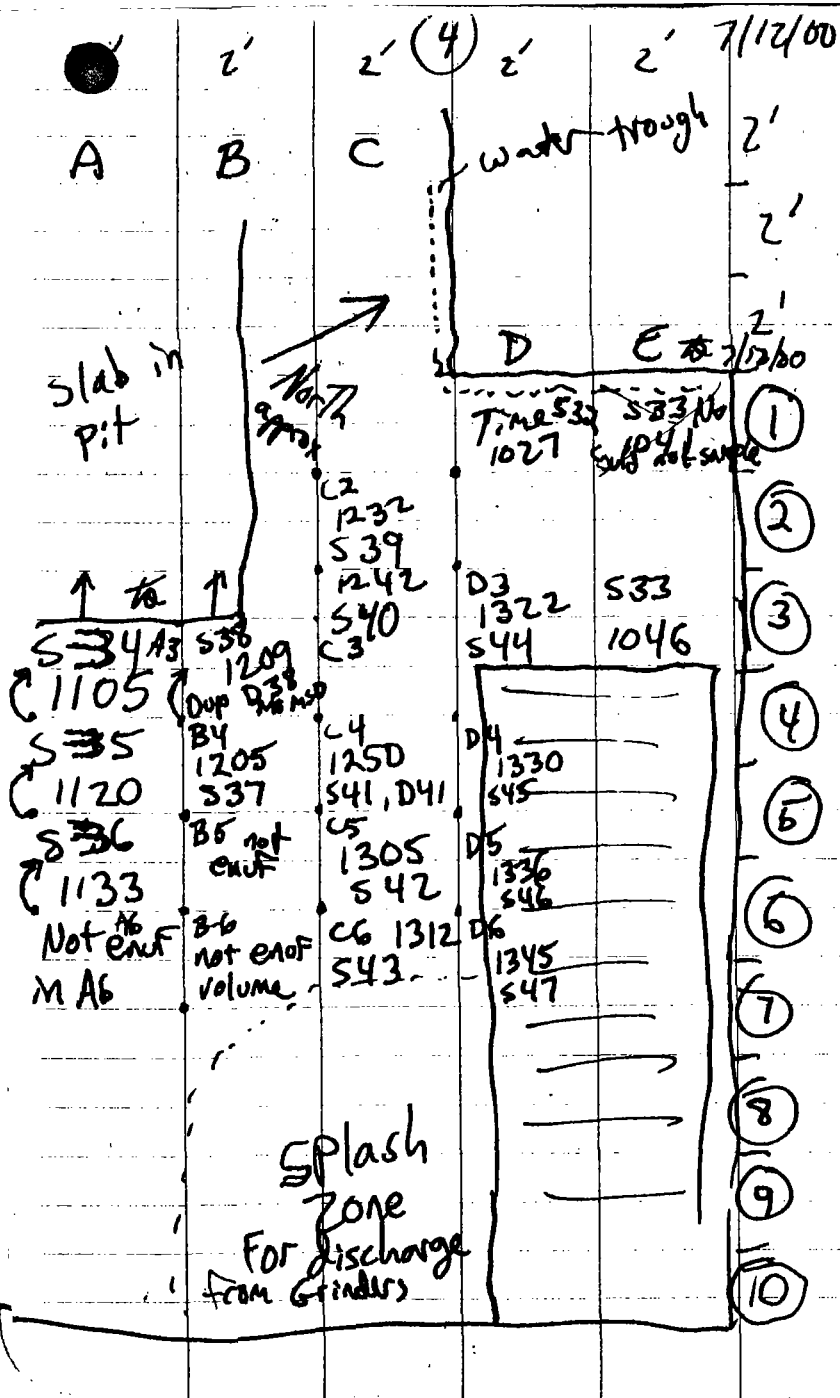 2' 2' (4) 2' 2' 7/12/00
A B C water trough 2'
2'
2'
D E 7/12/00
slab in
pit
North
approx
Time S32 S33 No
1027 not sample
1
C2
1232
S39
2
1242
S40
C3
D3
1322
S44
S33
1046
3
S34 A3
1105
S38
1209
Dup D38
MS MSD
4
S35
1120
B4
1205
S37
C4
1250
S41, D41
D4
1330
S45
5
S36
1133
B5 not
enuf
C5
1305
S42
D5
1336
S46
6
Not enuf A6
in A6
B-6
not enof
volume
C6 1312
S43
D6
1345
S47
7
8
9
10
Splash
Zone
For discharge
from Grinders